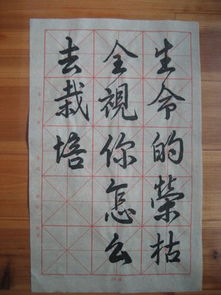 生命的榮枯
全視你怎么
去栽培